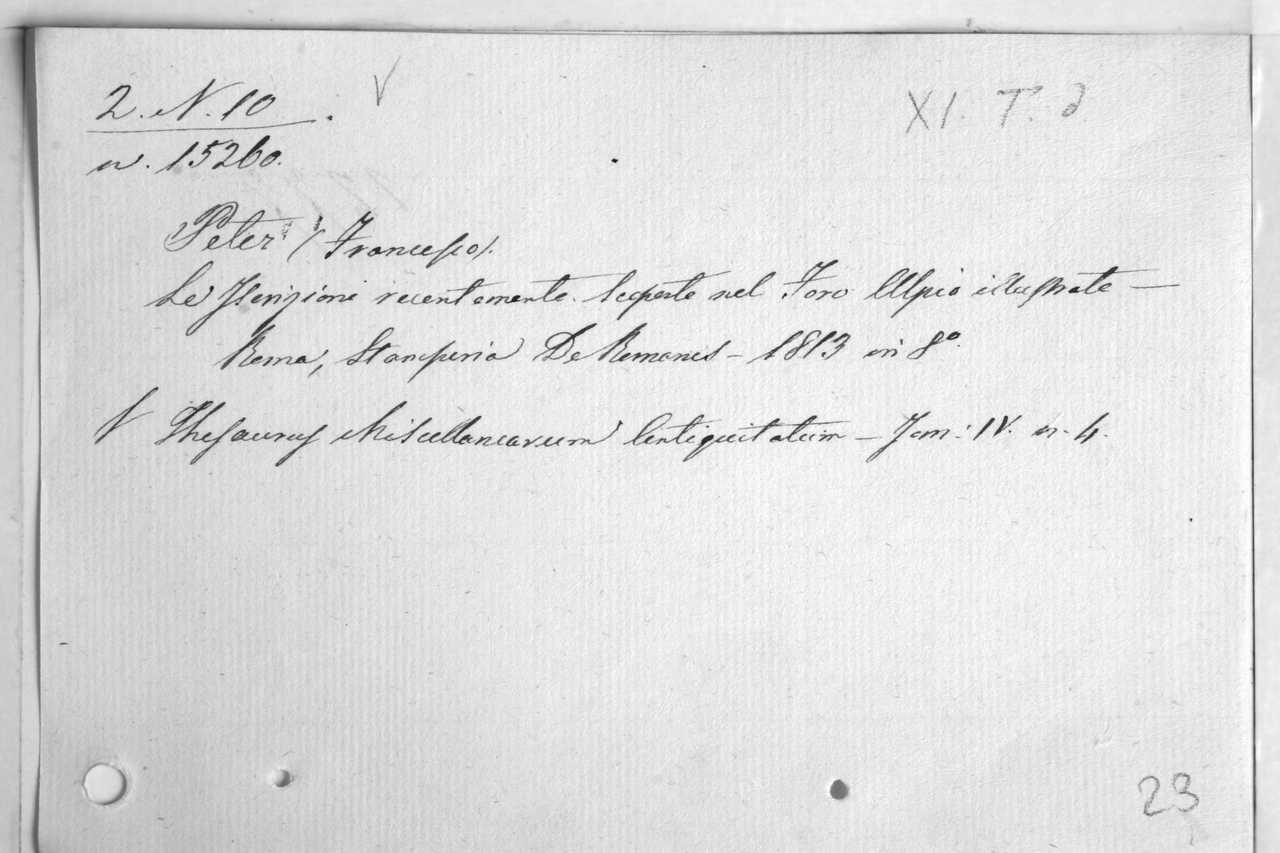 2. N. 10. V XI. T. d
n. 15260.
Peter (Francesco).
Le Iscrizioni recentemente scoperte nel Foro Ulpio illustrate —
Roma, Stamperia De Romanis — 1813 in 8º.
V Thesaurus Miscellanearum Antiquitatum — Tom: IV. n. 4.
23